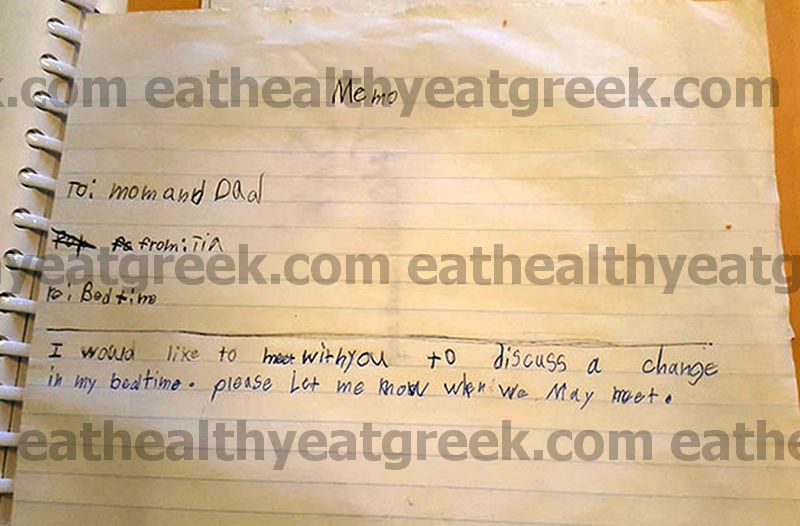 .com eathealthyeatgreek.com eathealthyeatgreek.com
Memo
To: mom and Dad
from: Tia
eatgreek.com eathealthyeatg
re: Bedtime
I would like to meet with you to discuss a change
in my bedtime. please Let me know when we May meet.
eathealthyeatgreek.com eathe